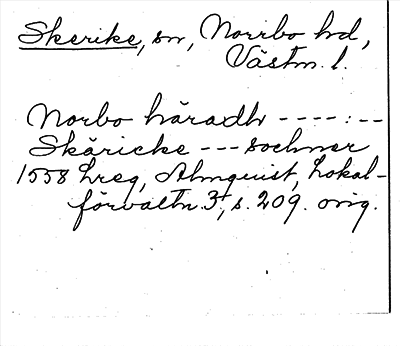 Skerike, sn, Norrbo hd,
Västm. l.
Norbo häradh ----:--
Skäricke --- sochner
1558 Lreg, Almquist, Lokal-
förvaltn. 3, s. 209. orig.